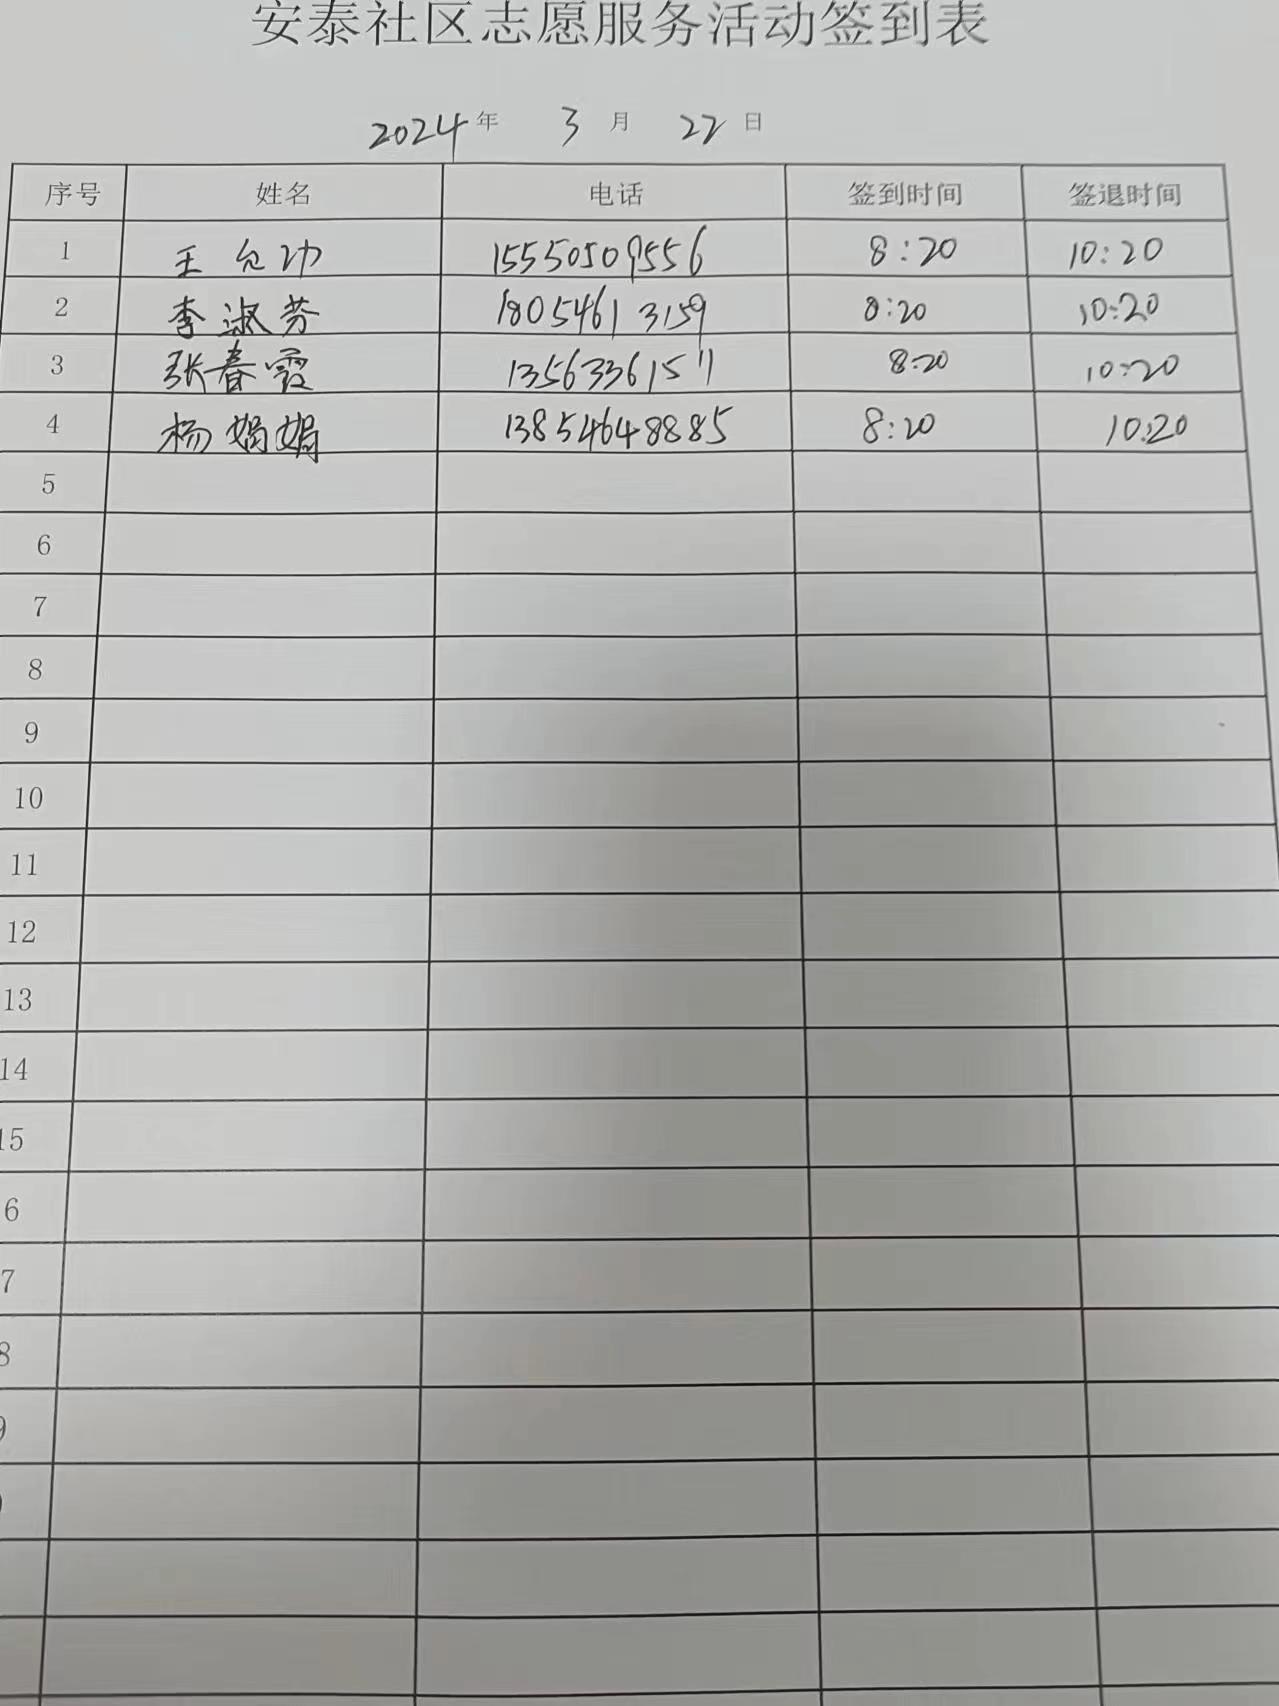 安泰社区志愿服务活动签到表
2024年 3月 22日
序号 姓名 电话 签到时间 签退时间
1 王允功 15550509556 8:20 10:20
2 李淑芬 18054613159 8:20 10:20
3 张春霞 13563361511 8:20 10:20
4 杨娟娟 13854648885 8:20 10:20
5
6
7
8
9
10
11
12
13
14
15
6
7
8
9